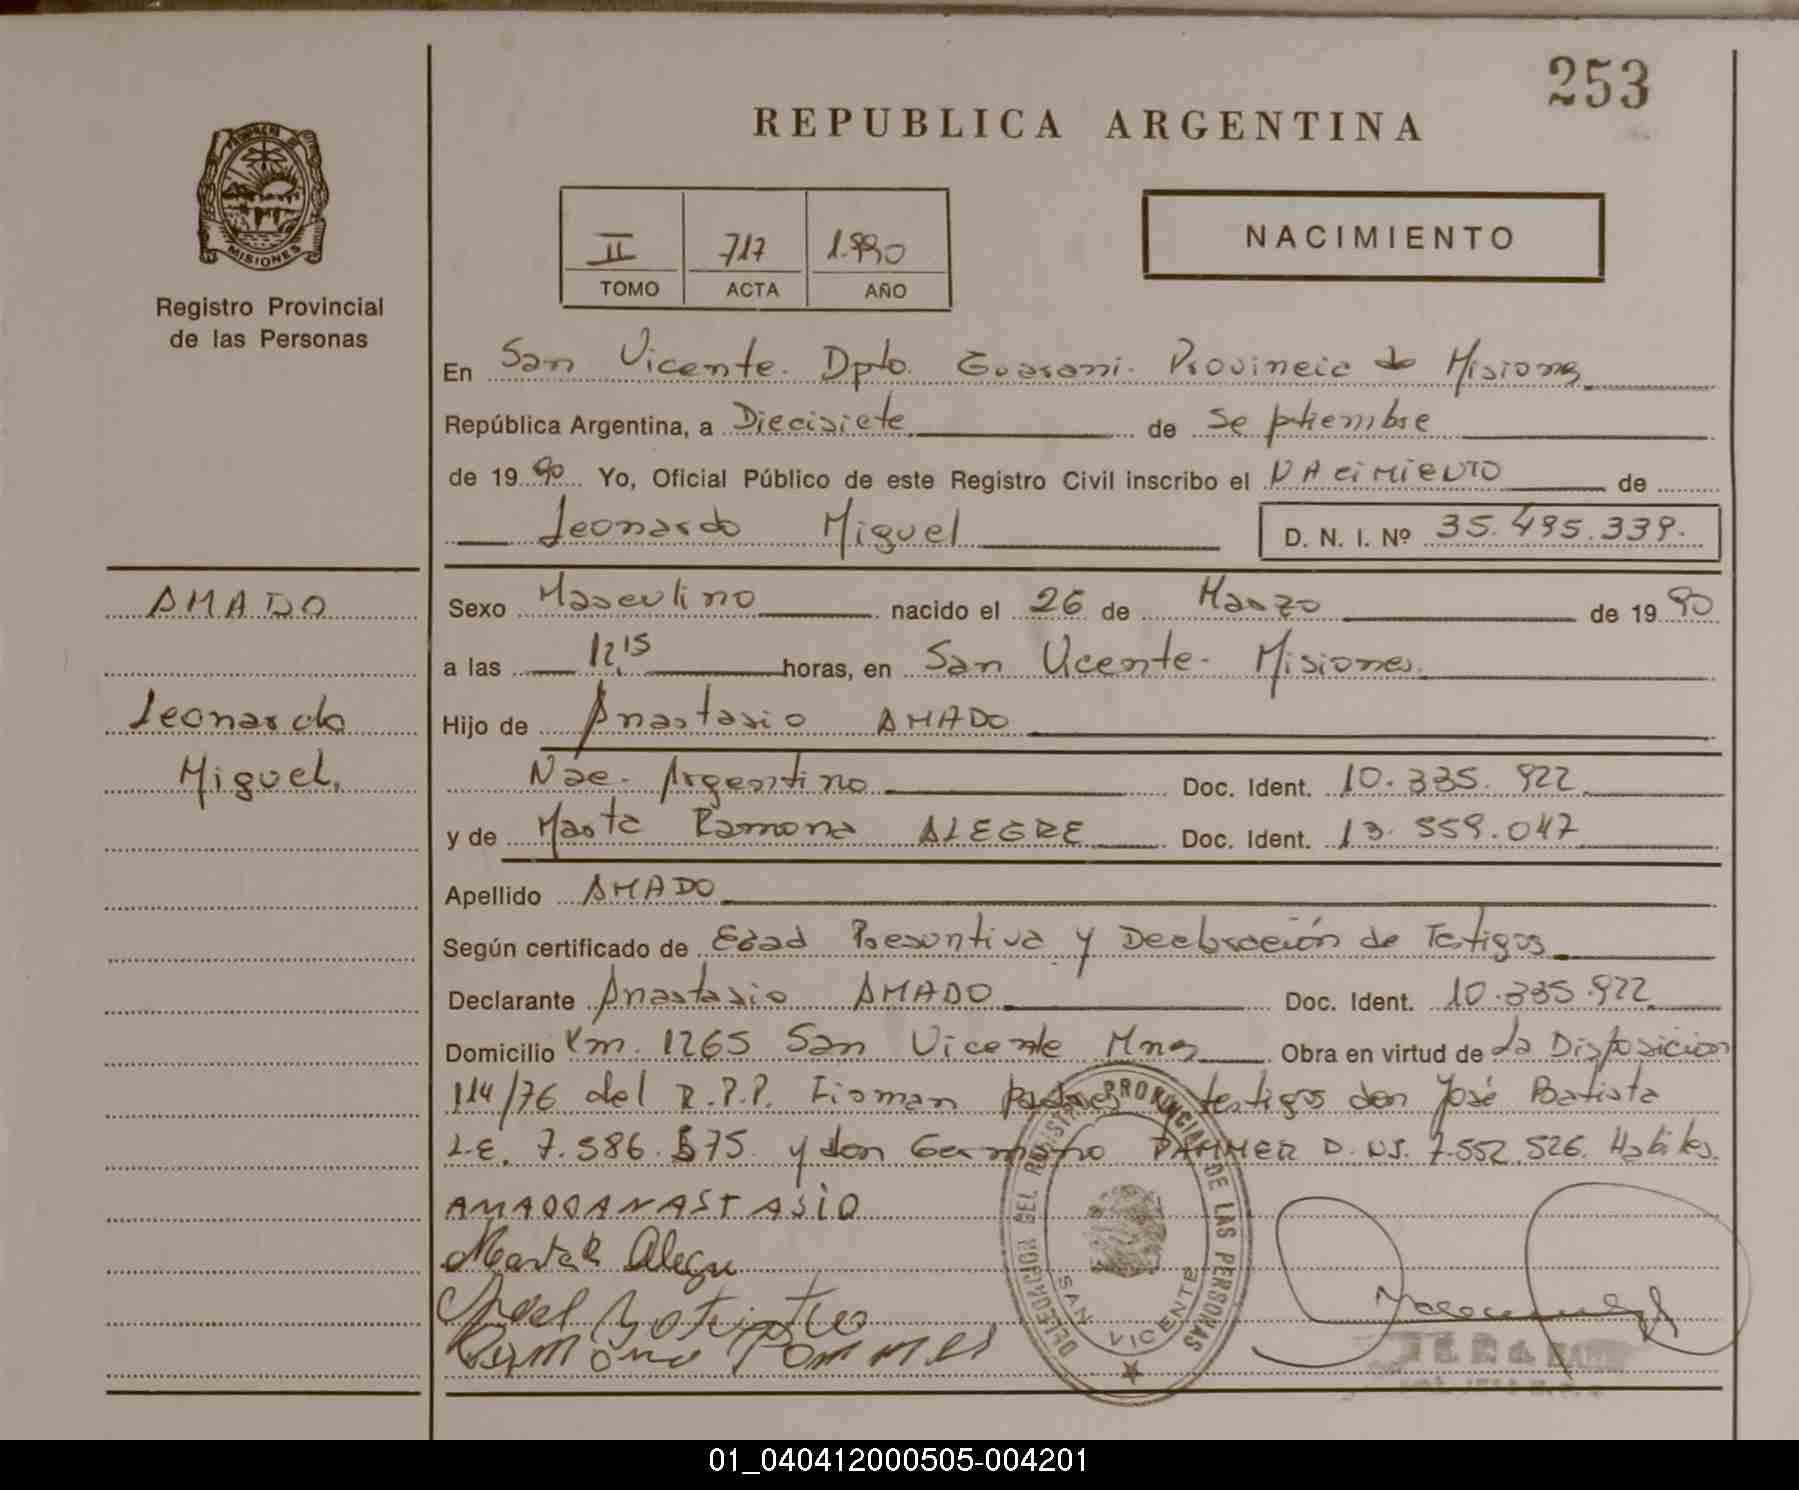 253
REPUBLICA ARGENTINA
PROVINCIA
MISIONES
Registro Provincial
de las Personas
II 717 1.990
TOMO ACTA AÑO
NACIMIENTO
En San Vicente. Dpto. Guarani. Provincia de Misiones
República Argentina, a Diecisiete de Septiembre
de 1990 Yo, Oficial Público de este Registro Civil inscribo el NAciMiENTO de
Leonardo Miguel D. N. I. Nº 35.495.339.
AMADO
Leonardo
Miguel.
Sexo Masculino nacido el 26 de Marzo de 1990
a las 12,15 horas, en San Vicente - Misiones.
Hijo de Anastasio AMADO
Nac. Argentino Doc. Ident. 10.335.922
y de Marta Ramona ALEGRE Doc. Ident. 13.559.047
Apellido AMADO
Según certificado de Edad Presuntiva y Declaración de Testigos
Declarante Anastasio AMADO Doc. Ident. 10.335.922
Domicilio Km. 1265 San Vicente Mnes Obra en virtud de La Disposicion
114/76 del R.P.P. Firman padres testigos don José Batista
L.E. 7.586.575 y don Germano PAMMER D. 7.552.526. Habiles.
AMADO ANASTASIO
Marta R Alegre
DELEGACION DEL REGISTRO PROVINCIAL DE LAS PERSONAS
SAN VICENTE
01_040412000505-004201